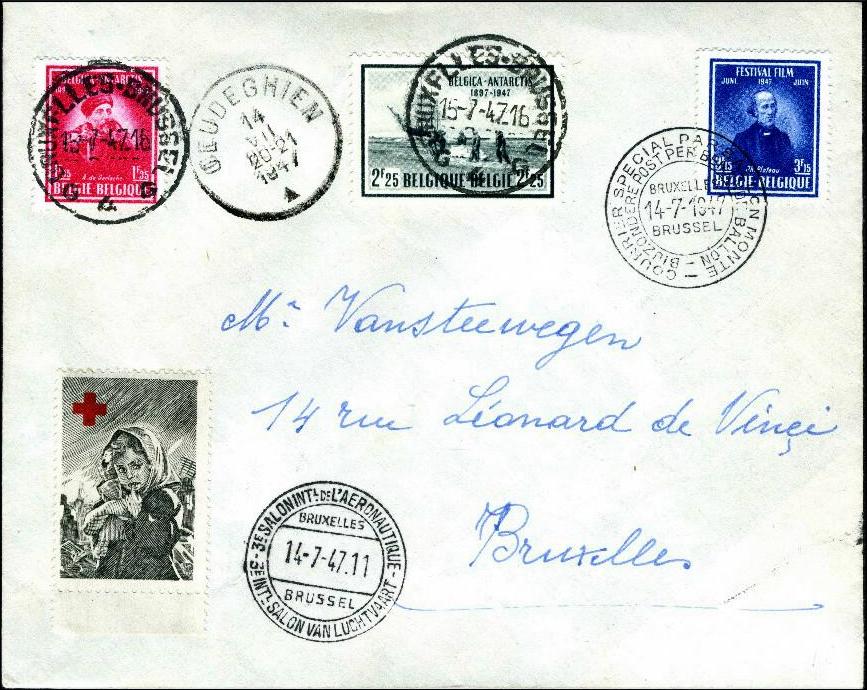 BELGICA-ANTARCTIS
A. de Gerlache
1F35
BELGIE-BELGIQUE
BRUXELLES-BRUSSEL
15-7-47.16
GEUDEGHIEN
14
VII
20-21
1947
BELGICA-ANTARCTIS
1897-1947
2F25 BELGIQUE BELGIE 2F25
BRUXELLES-BRUSSEL
15-7-47.16
FESTIVAL FILM
JUNI 1947 JUIN
Ph. Plateau
3F15 3F15
BELGIE-BELGIQUE
COURRIER SPECIAL PAR BALLON MONTE
BIJZONDERE POST PER BALLON
BRUXELLES
14-7-1947
BRUSSEL
Mr. Vansteewegen
14 rue Léonard de Vinçi
Bruxelles
3E SALON INTL DE L'AERONAUTIQUE
BRUXELLES
14-7-47.11
BRUSSEL
3E INTL SALON VAN LUCHTVAART